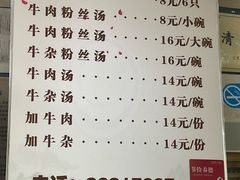 8元/6只
牛肉粉丝汤 8元/小碗
牛肉粉丝汤 16元/大碗
牛杂粉丝汤 16元/碗
牛肉汤 14元/碗
牛杂汤 14元/碗
加牛肉 14元/份
加牛杂 14元/份
清